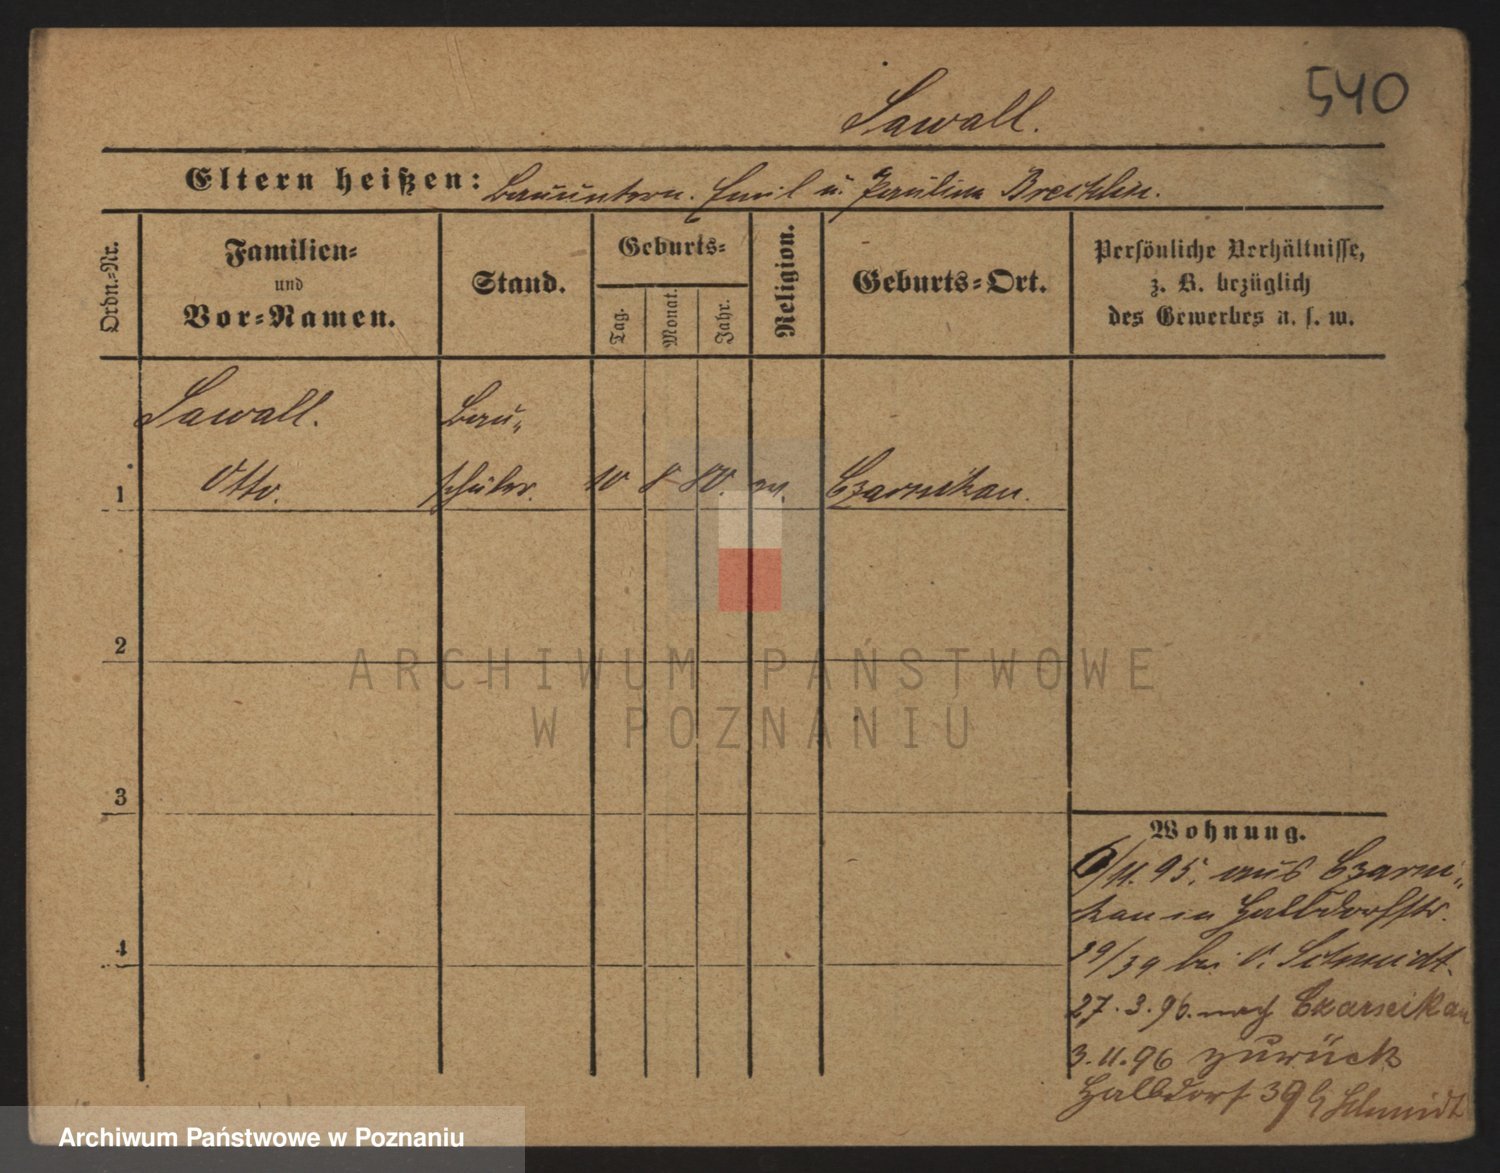 540
Sawall.
Eltern heißen: Bauuntern. Emil u. Paulina Brechlin.
Ordn.-Nr.
Familien-
und
Vor-Namen.
Stand.
Geburts-
Tag.
Monat.
Jahr.
Religion.
Geburts-Ort.
Persönliche Verhältnisse,
z. B. bezüglich
des Gewerbes u. s. w.
Sawall. Bau-
1 Otto. schüler. 10 8 80. ev. Czarnikau.
2
3
4
Wohnung.
6/11. 95. aus Czarni-
kau in Halbdorfstr.
29/39 bei O. Schmidt.
27.3.96. nach Czarnikau
3.11.96 zurück
Halbdorf 39 b Schmidt
ARCHIWUM PAŃSTWOWE
W POZNANIU
Archiwum Państwowe w Poznaniu